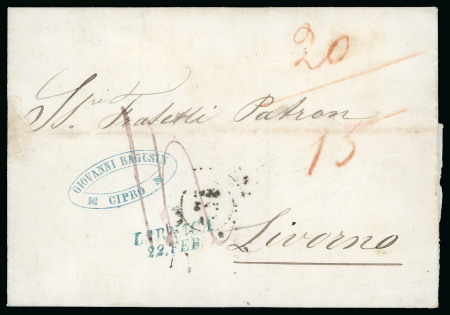 20
Sri. Fratelli Patron
15
GIOVANNI RAGUSIN
CIPRO
22. FEB.
Livorno